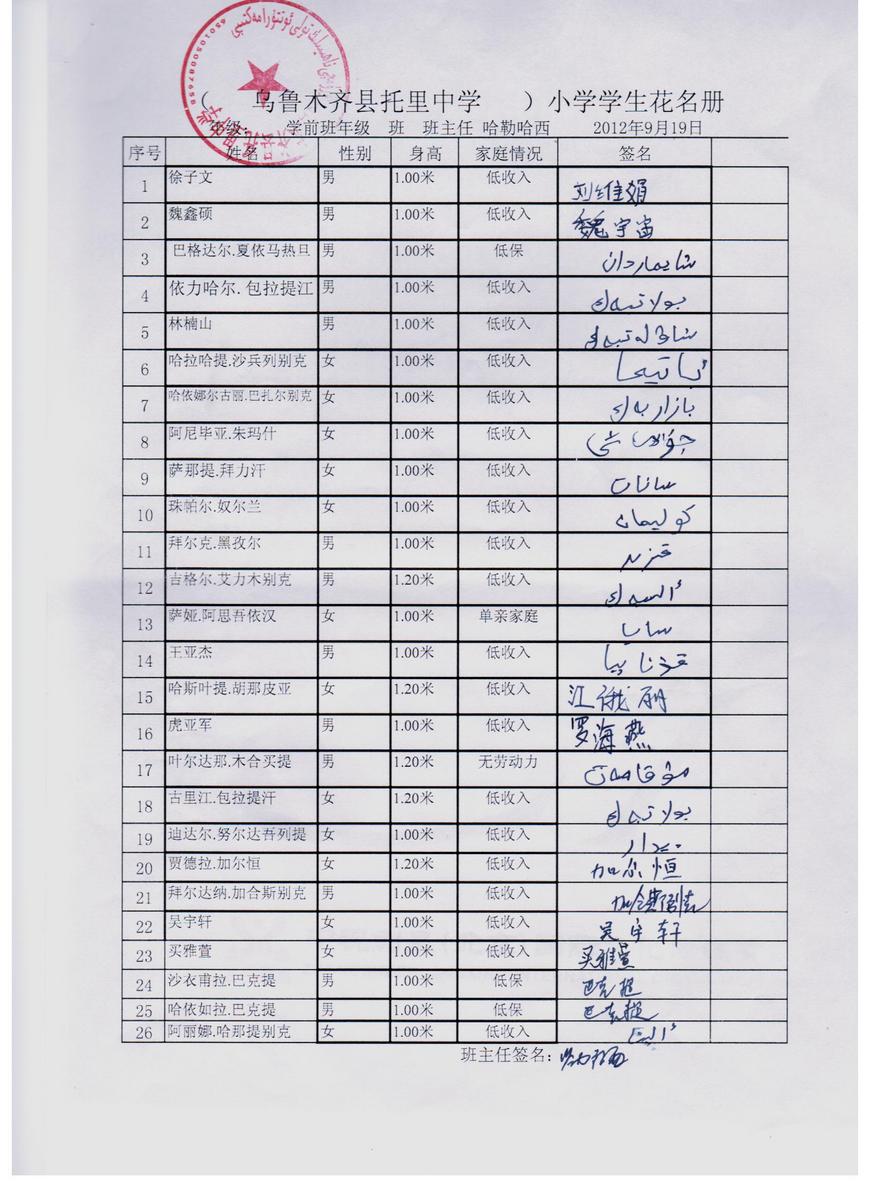 （ 乌鲁木齐县托里中学 ）小学学生花名册
学前班年级 班 班主任 哈勒哈西 2012年9月19日
序号 姓名 性别 身高 家庭情况 签名
1 徐子文 男 1.00米 低收入 刘维娟
2 魏鑫硕 男 1.00米 低收入 魏宇宙
3 巴格达尔.夏依马热旦 男 1.00米 低保 شايماردان
4 依力哈尔.包拉提江 男 1.00米 低收入 بولاتبەك
5 林楠山 男 1.00米 低收入
6 哈拉哈提.沙兵列别克 女 1.00米 低收入
7 哈依娜尔古丽.巴扎尔别克 女 1.00米 低收入 بازاربەك
8 阿尼毕亚.朱玛什 女 1.00米 低收入
9 萨那提.拜力汗 女 1.00米 低收入 سانات
10 珠帕尔.奴尔兰 女 1.00米 低收入
11 拜尔克.黑孜尔 男 1.00米 低收入
12 吉格尔.艾力木别克 男 1.20米 低收入
13 萨娅.阿思吾依汉 女 1.00米 单亲家庭 سايا
14 王亚杰 男 1.00米 低收入
15 哈斯叶提.胡那皮亚 女 1.20米 低收入 江俄丽
16 虎亚军 男 1.00米 低收入 罗海燕
17 叶尔达那.木合买提 男 1.20米 无劳动力
18 古里江.包拉提汗 女 1.20米 低收入 بولاتبەك
19 迪达尔.努尔达吾列提 女 1.00米 低收入
20 贾德拉.加尔恒 女 1.20米 低收入 加尔恒
21 拜尔达纳.加合斯别克 男 1.00米 低收入
22 吴宇轩 女 1.00米 低收入 吴宇轩
23 买雅萱 女 1.00米 低收入 买雅萱
24 沙衣甫拉.巴克提 男 1.00米 低保 巴克提
25 哈依如拉.巴克提 男 1.00米 低保 巴克提
26 阿丽娜.哈那提别克 女 1.00米 低收入
班主任签名：